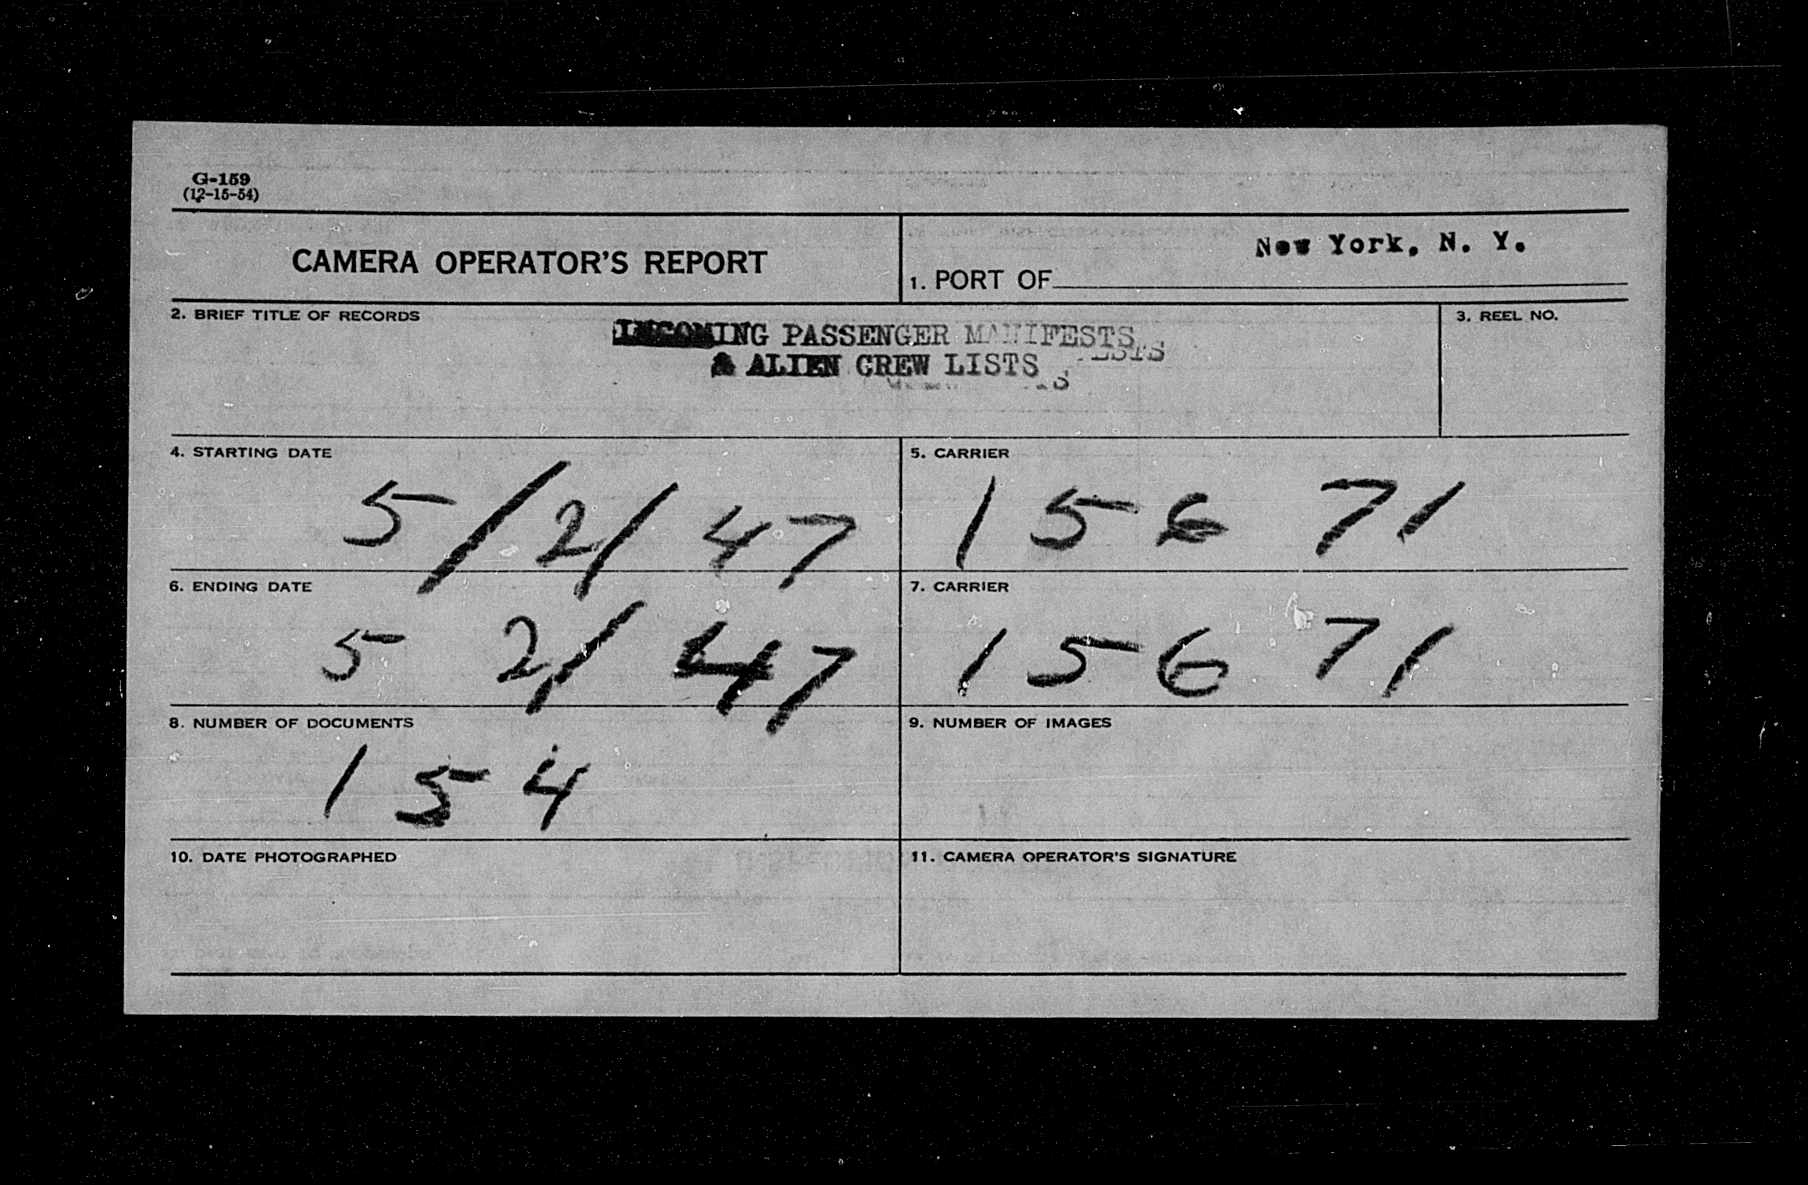 G-159
(12-15-54)
CAMERA OPERATOR'S REPORT
1. PORT OF New York, N. Y.
2. BRIEF TITLE OF RECORDS
INCOMING PASSENGER MANIFESTS
& ALIEN CREW LISTS
3. REEL NO.
4. STARTING DATE
5/2/47
5. CARRIER
156 71
6. ENDING DATE
5 2/47
7. CARRIER
156 71
8. NUMBER OF DOCUMENTS
154
9. NUMBER OF IMAGES
10. DATE PHOTOGRAPHED
11. CAMERA OPERATOR'S SIGNATURE